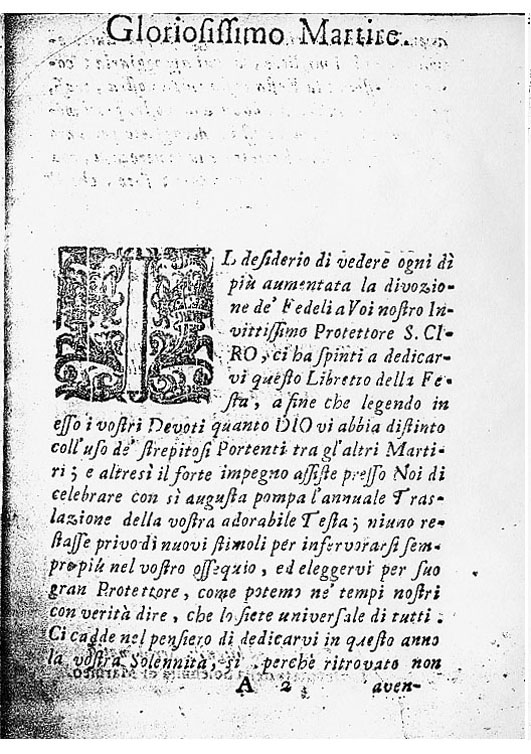 Gloriosissimo Martire.
IL desiderio di vedere ogni dì
più aumentata la divozio-
ne de' Fedeli a Voi nostro In-
vittissimo Protettore S. CI-
RO, ci ha spinti a dedicar-
vi questo Libretto della Fe-
sta, a fine che legendo in
esso i vostri Devoti quanto DIO vi abbia distinto
coll'uso de' strepitosi Portenti tra gl'altri Marti-
ri; e altresì il forte impegno assiste presso Noi di
celebrare con sì augusta pompa l'annuale Tras-
lazione della vostra adorabile Testa; niuno re-
stasse privo di nuovi stimoli per infervorarsi sem-
pre più nel vostro ossequio, ed eleggervi per suo
gran Protettore, come potemo ne' tempi nostri
con verità dire, che lo siete universale di tutti.
Ci cadde nel pensiero di dedicarvi in questo anno
la vostra Solennità, sì perchè ritrovato non
A 2 aven-